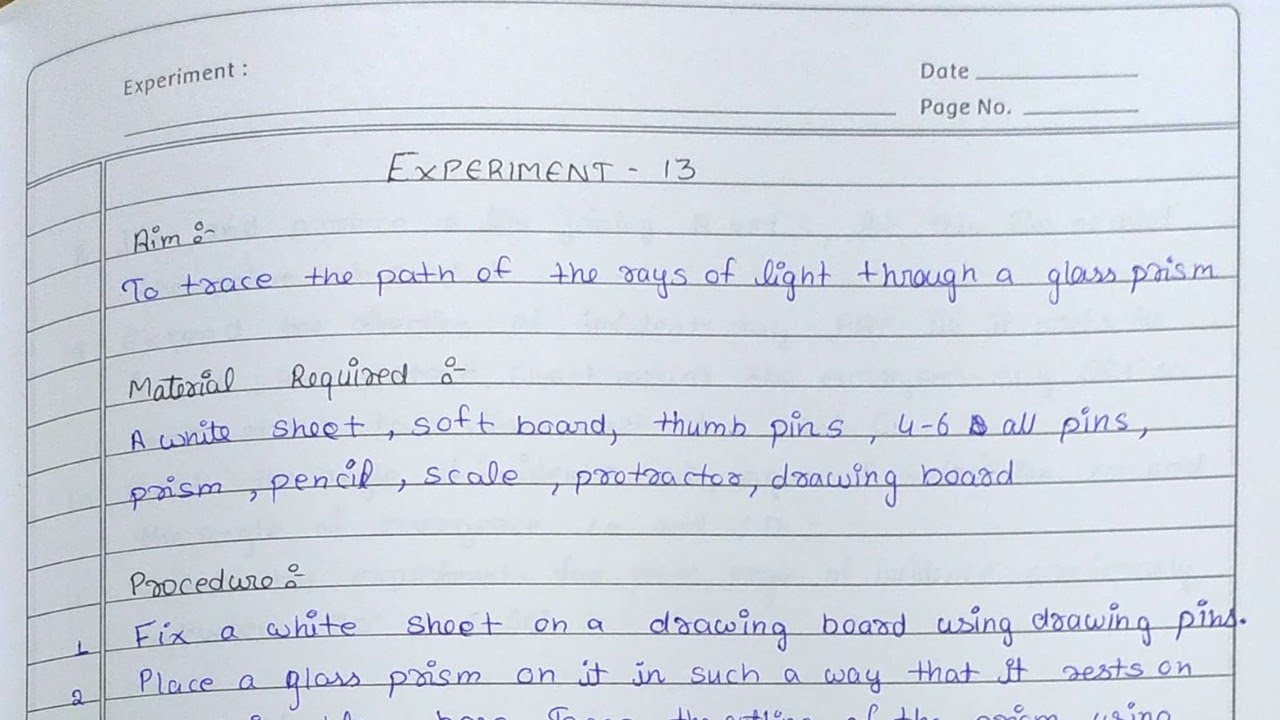 Experiment :
Date
Page No.
EXPERIMENT - 13
Aim :-
To trace the path of the rays of light through a glass prism
Material Required :-
A white sheet, soft board, thumb pins, 4-6 all pins,
prism, pencil, scale, protractor, drawing board
Procedure :-
1 Fix a white sheet on a drawing board using drawing pins.
2 Place a glass prism on it in such a way that it rests on
base. Trace the outline of the prism using